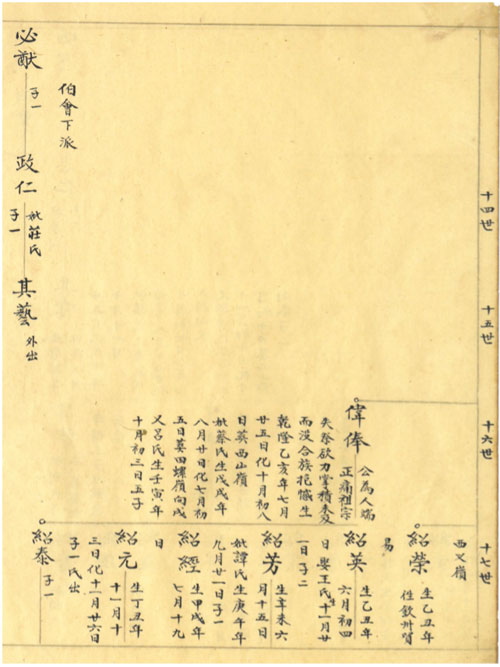 十四世
十五世
十六世
十七世
偉俸
公為人端
正痛祖宗
失祭欲力掌積未及
而没合族抱憾生
乾隆乙亥年七月
廿五日化十月初八
日葵西山嶺
妣蔡氏生戊戌年
八月廿日化七月初
五日葵田螺嶺向戌
又吕氏生壬寅年
十月初三日五子
西义嶺
紹榮
生乙丑年
性欽州質
易
紹英
生乙丑年
六月初四
日 娶王氏十一月廿
一日子二
紹芳
生辛未六
月十五日
妣譚氏生庚午年
九月廿一日子一
紹經
生甲戌年
七月十九
日
紹元
生丁丑年
十一月十
三日化十一月廿六日
子一氏出
紹泰
子一
伯會下派
必猷
子一
政仁
妣莊氏
子一
其藝
外出